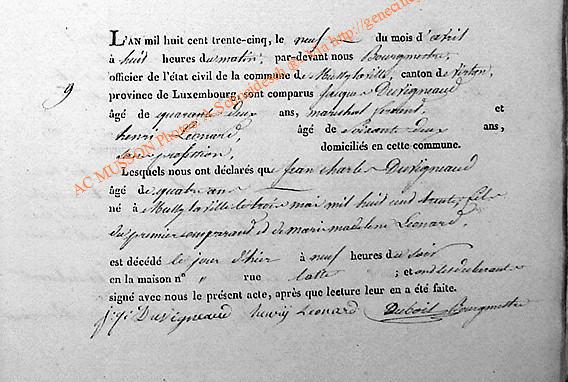 L'AN mil huit cent trente-cinq, le neuf du mois d'avril
à huit heures du matin, par-devant nous Bourgmestre,
officier de l'état civil de la commune de Mussy la ville, canton de Virton,
9
province de Luxembourg, sont comparus Jacques Duvigneaud
âgé de quarante deux ans, marechal ferrant, et
henri Leonard, âgé de soixante deux ans,
sans profession, domiciliés en cette commune.
Lesquels nous ont déclarés que Jean charles Duvigneaud
âgé de quatre ans
né à Mussy la ville le trois mai mil huit cent trente, fils
du premier comparant, et de marie madeleine Leonard,
est décédé le jour d'hier à neuf heures du soir
en la maison nº " rue latte ; et ont les déclarants
signé avec nous le présent acte, après que lecture leur en a été faite.
Duvigneaud henry Leonard Duboit Bourgmestre
AC MUSSON Photos A. Schneidesch @ bla http://geneci